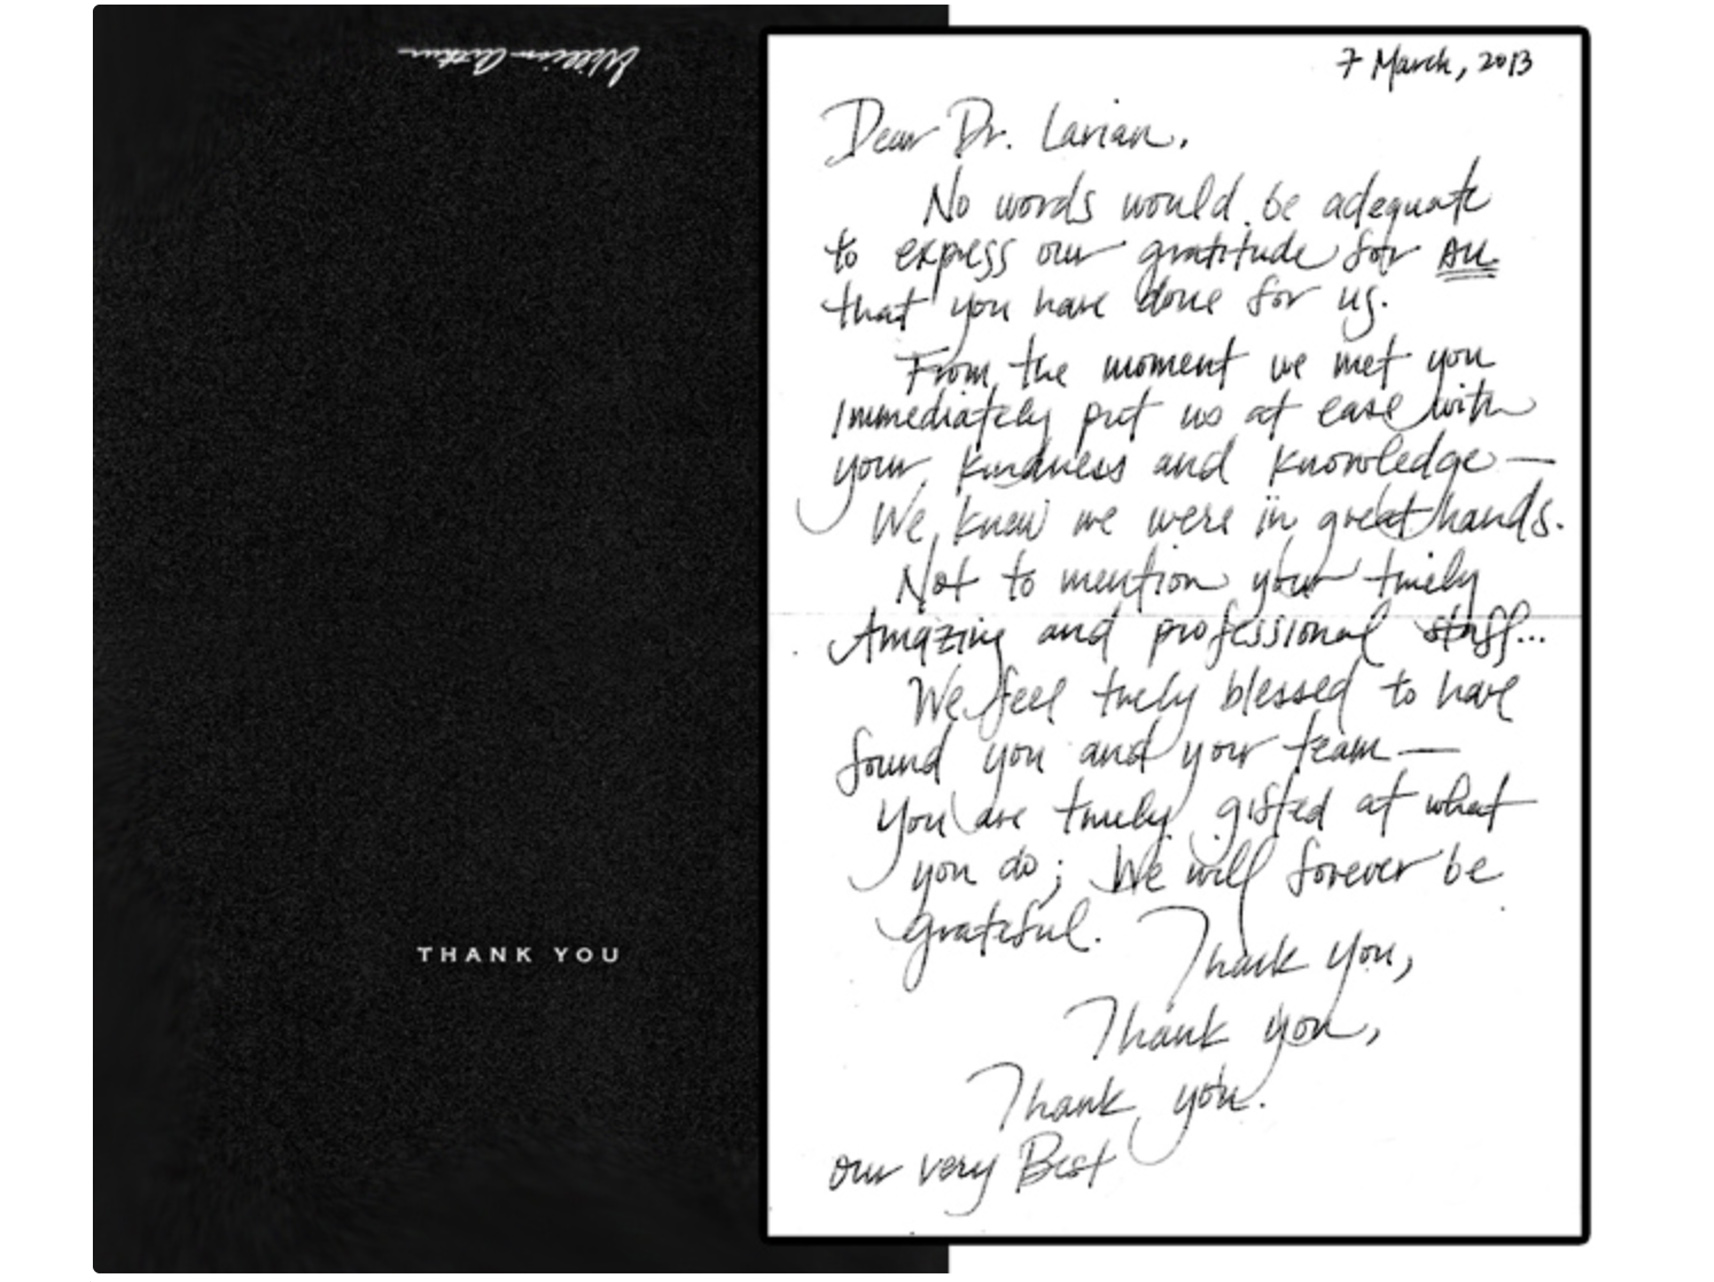 William Arthur
THANK YOU
7 March, 2013
Dear Dr. Larian,
No words would be adequate
to express our gratitude for ALL
that you have done for us.
From the moment we met you
immediately put us at ease with
your kindness and knowledge —
We knew we were in great hands.
Not to mention your truely
Amazing and professional staff...
We feel truely blessed to have
found you and your team —
You are truely gifted at what
you do; We will forever be
grateful. Thank you,
Thank you,
Thank you.
our very Best